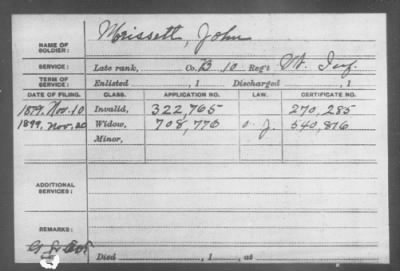 NAME OF SOLDIER: Morissett, John
SERVICE: Late rank, Co. B 10 Reg't Inf.
TERM OF SERVICE: Enlisted , 1 Discharged , 1
DATE OF FILING. CLASS. APPLICATION NO. LAW. CERTIFICATE NO.
1879, Nov. 10 Invalid, 322,765 270,285
1899, Nov. 20 Widow, 708,770 540,816
Minor,
ADDITIONAL SERVICES:
REMARKS:
Died , 1 , at